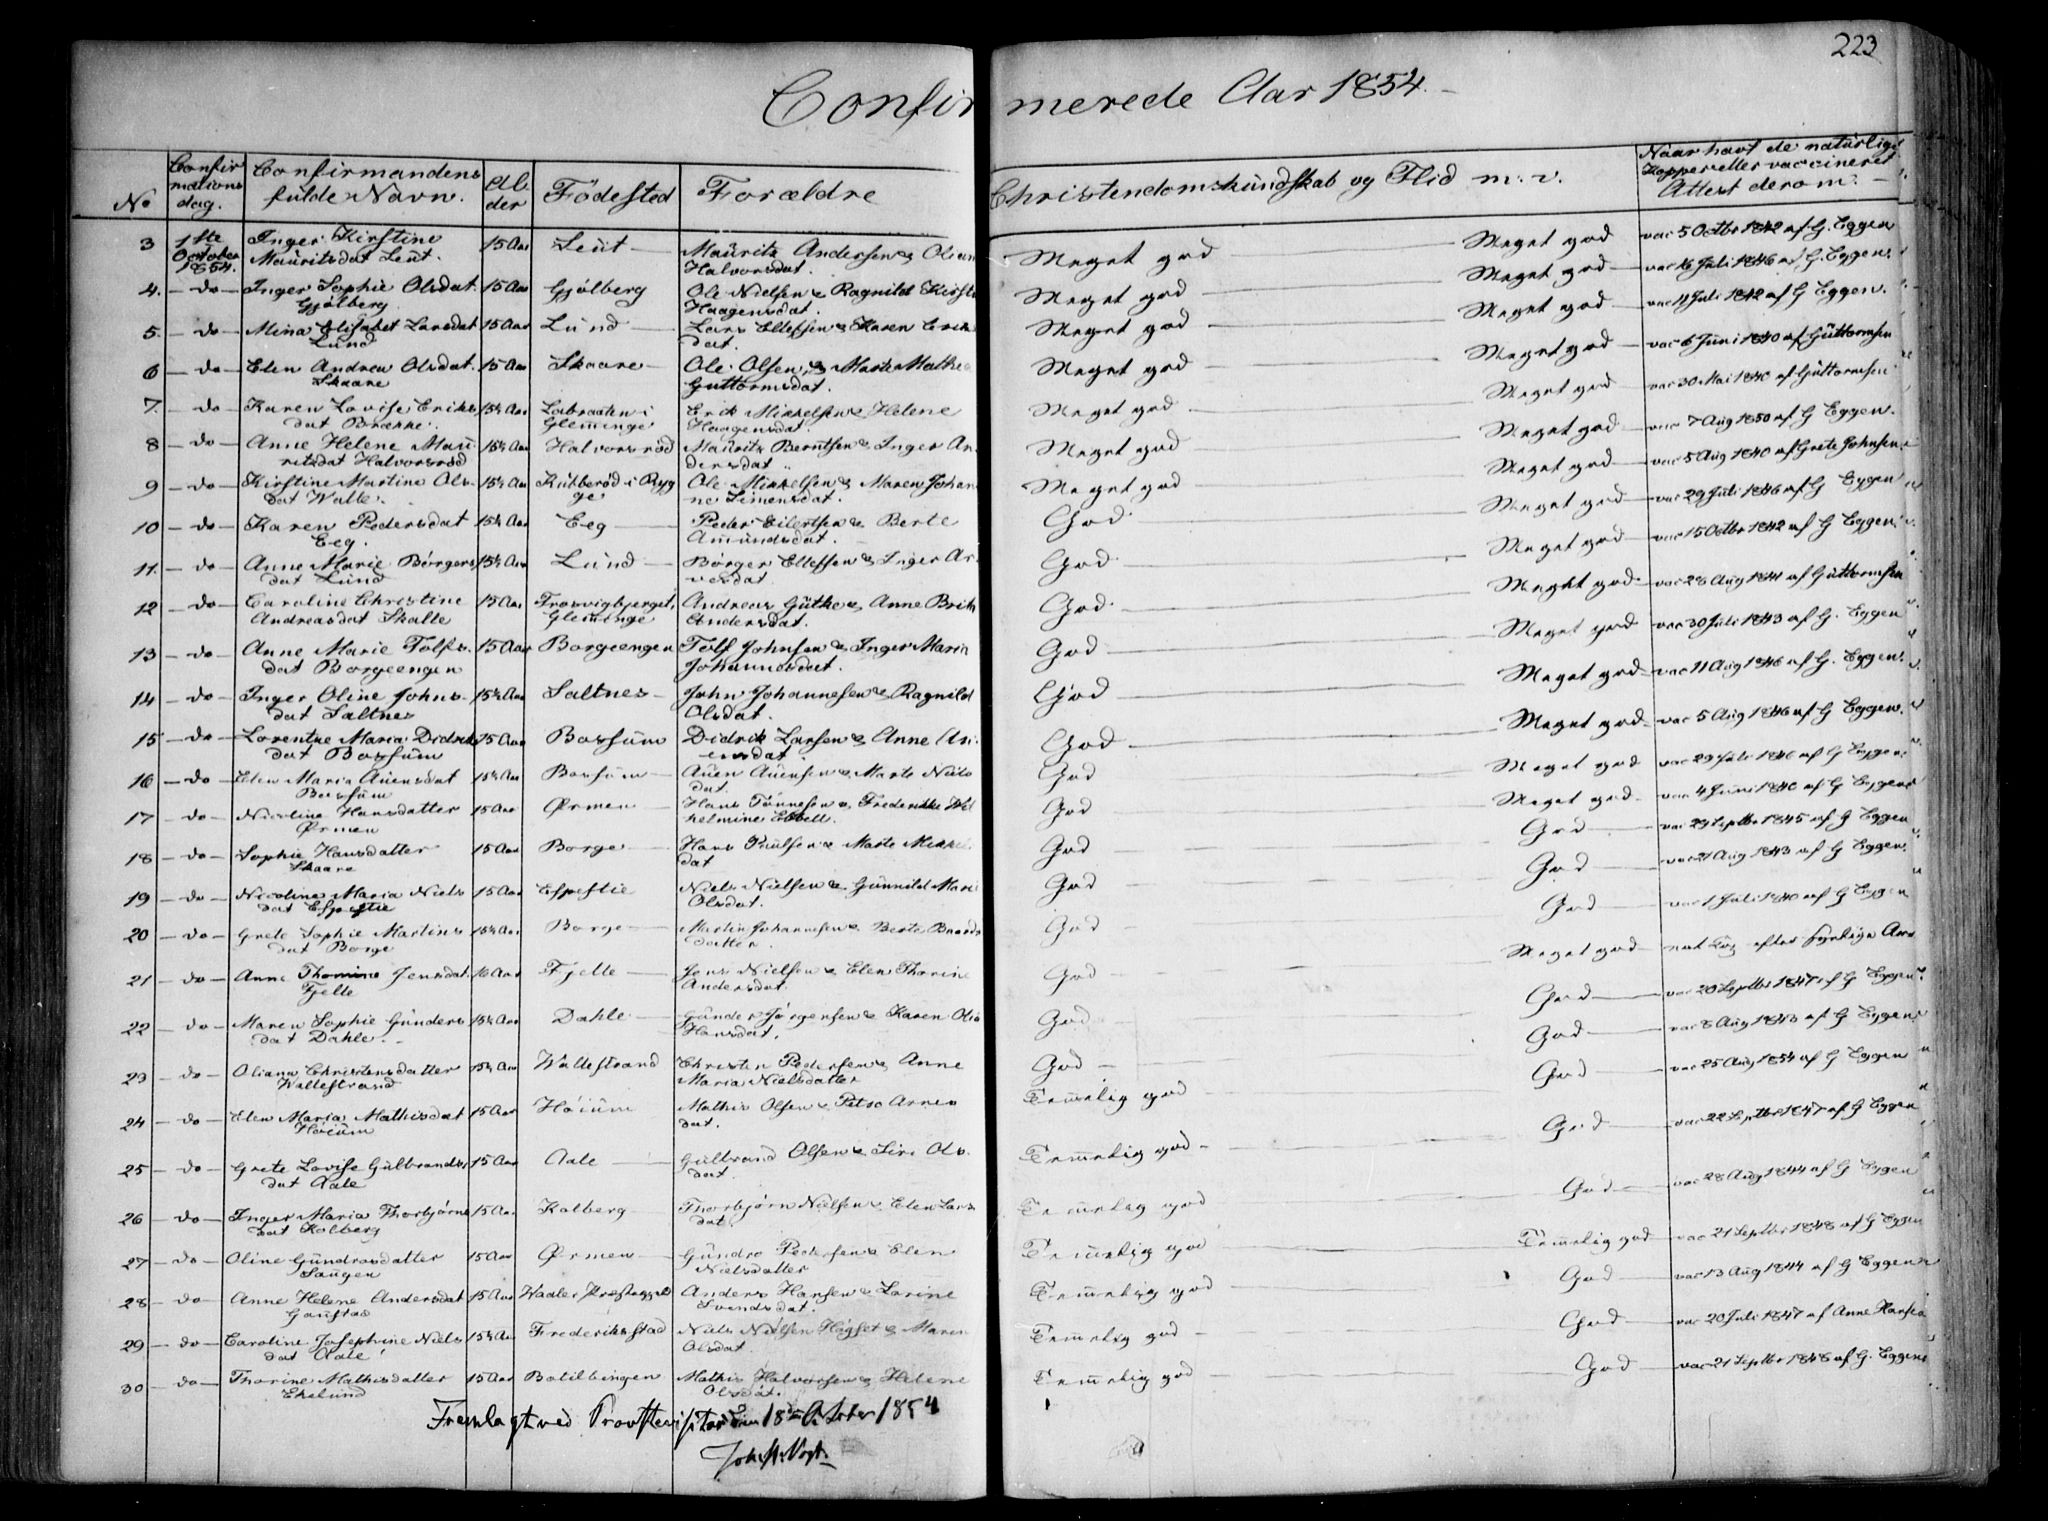 223
Confirmerede Aar 1854.
No
Confirmations dag.
Confirmandens fulde Navn.
Alder
Födested
Forældre
Christendomskundskab og Flid m. v.
Naar havt de naturlige Kopper eller vaccineret Attest derom.
3 1ste October 1854. Inger Kirstine 15 Aar Leut Mauritz Andersen & Olian Meget god Meget god vac 5 Octbr 1842 af G. Eggen
Mauritsdat Leut. Halvorsdat.
4. do Inger Sophie Olsdat 15 Aar Gjölberg Ole Nielsen & Ragnild Kirsti Meget god Meget god vac 16 Juli 1846 af G. Eggen.
Gjölberg Haagensdat.
5. do Mina Elisabet Larsdat 15 Aar Lund Lars Ellefsen & Karen Eriks Meget god Meget god vac 11 Juli 1842 af G Eggen.
Lund dat.
6 do Elen Andrea Olsdat. 15 Aar Skaare Ole Olsen & Marte Mathea Meget god Meget god vac 6 Juni 1840 af Guttormsen
Skaare Guttormsdat.
7. do Karen Lovise Eriks 15½ Aar Labraaten i Erik Mikkelsen & Helene Meget god Meget god vac 30 Mai 1840 af Guttormsen
dat Brække. Glem̅inge Haagensdat.
8 do Anne Helene Mau 15½ Aar Halvorsröd Mauritz Berntsen & Inger An Meget god Meget god vac 7 Aug 1850 af G Eggen.
ritsdat Halvorsröd dersdat
9 do Kirstine Martine Ols 15½ Aar Kutberöd i Ryg Ole Mikkelsen & Maren Johan Meget god Meget god vac 5 Aug 1840 af Grete Johnsen
dat Walle. ge ne Simensdat.
10 do Karen Pedersdat 15½ Aar Eeg Peder Eilertsen & Berte God Meget god vac 29 Juli 1846 af G Eggen
Eeg. Amundsdat.
11. do Anne Marie Börgers 15½ Aar Lund Börger Ellefsen & Inger Ar God Meget god vac 15 Octbr 1842 af G Eggen
dat Lund vesdat
12 do Caroline Christine 15 Aar Trosvigbjerget, Andreas Guthe & Anne Brit God Meget god vac 28 Aug 1841 af Guttormsen
Andreasdat Skalle Glem̅inge Andersdat.
13 do Anne Marie Tolfs 15 Aar Borgeengen Tolf Johnsen & Inger Maria God Meget god vac 30 Juli 1843 af G. Eggen
dat Borgeengen Johannesdat.
14 do Inger Oline Johns 15½ Aar Saltnes John Johannesen & Ragnild God Meget god vac 11 Aug 1846 af G. Eggen.
dat Saltnes Olsdat.
15 do Lorentze Maria Didriks 15 Aar Borsum Didrik Larsen & Anne An God Meget god vac 5 Aug 1846 af G. Eggen.
dat Borsum
16 do Elen Maria Auensdat 15½ Aar Borsum Auen Auensen & Marte Niels God Meget god vac 29 Juli 1846 af G Eggen
Borsum dat.
17 do Nicoline Hansdatter 15 Aar Ørmen Hans Tönnesen & Frederikke Wil God Meget god vac 4 Juni 1840 af G Eggen
Ørmen helmine Ebbell.
18 do Sophie Hansdatter 15 Aar Borge Hans Paulsen & Marte Mikkels God God vac 29 Septbr 1845 af G Eggen
Skaare dat
19 do Nicoline Maria Niels 15 Aar Espestie Niels Nielsen & Gunnild Mari God God vac 21 Aug 1843 af G Eggen.
dat Espestie Olsdat.
20 do Grete Sophie Martins 15½ Aar Borge Martin Johannesen & Berte God God vac 1 Juli 1840 af G Eggen
dat Borge datter.
21 do Anne Thomine Jensdat 16 Aar Fjelle Jens Nielsen & Elen Thorine God Meget god nat Kop. efter synlige Arr
Fjelle Andersdat.
22 do Maren Sophie Gunders 15½ Aar Dahle Gunder Jörgensen & Karen Olia God God vac 20 Septbr 1847 af G Eggen
dat Dahle. Hansdat.
23 do Oliana Christensdatter 15½ Aar Wallestrand Christen Pedersen & Anne God God vac 8 Aug 1843 af G Eggen
Wallestrand Maria Nielsdatter
24 do Elen Maria Mathisdat 15 Aar Höium Mathis Olsen & Petro Arnes Tem̅elig god God vac 25 Aug 1854 af G Eggen
Höium dat.
25 do Grete Lovise Gulbrands 15 Aar Aale Gulbrand Olsen & Siri Ols Tem̅elig god God vac 22 Septbr 1847 af G Eggen
dat Aale dat.
26 do Inger Maria Thorbjörns 15 Aar Kolberg Thorbjörn Nielsen & Elen Lars Tem̅elig god God vac 28 Aug 1844 af G Eggen
dat Kolberg dat.
27 do Oline Gundrosdatter 15 Aar Ørmen Gundro Pedersen & Elen Tem̅elig god Tem̅elig god vac 21 Septbr 1848 af G Eggen
Saugen Nielsdatter
28 do Anne Helene Andersdat 15 Aar Waaler Anders Hansen & Lorine Tem̅elig god God vac 13 Aug 1844 af G Eggen
Gaustad Svendsdat.
29 do Caroline Josephine Niels 15½ Aar Frederikstad Niels Nielsen & Maren Tem̅elig god God vac 20 Juli 1847 af Anne Hansen
dat Aale Olsdat.
30 do Thorine Mathisdatter 15 Aar Botilbingen Mathis Halvorsen & Helene Tem̅elig god God vac 21 Septbr 1848 af G. Eggen
Ekelund Olsdat.
Fremlagt ved Provstevisitatsen 18de October 1854
Joh. St. Vogt.